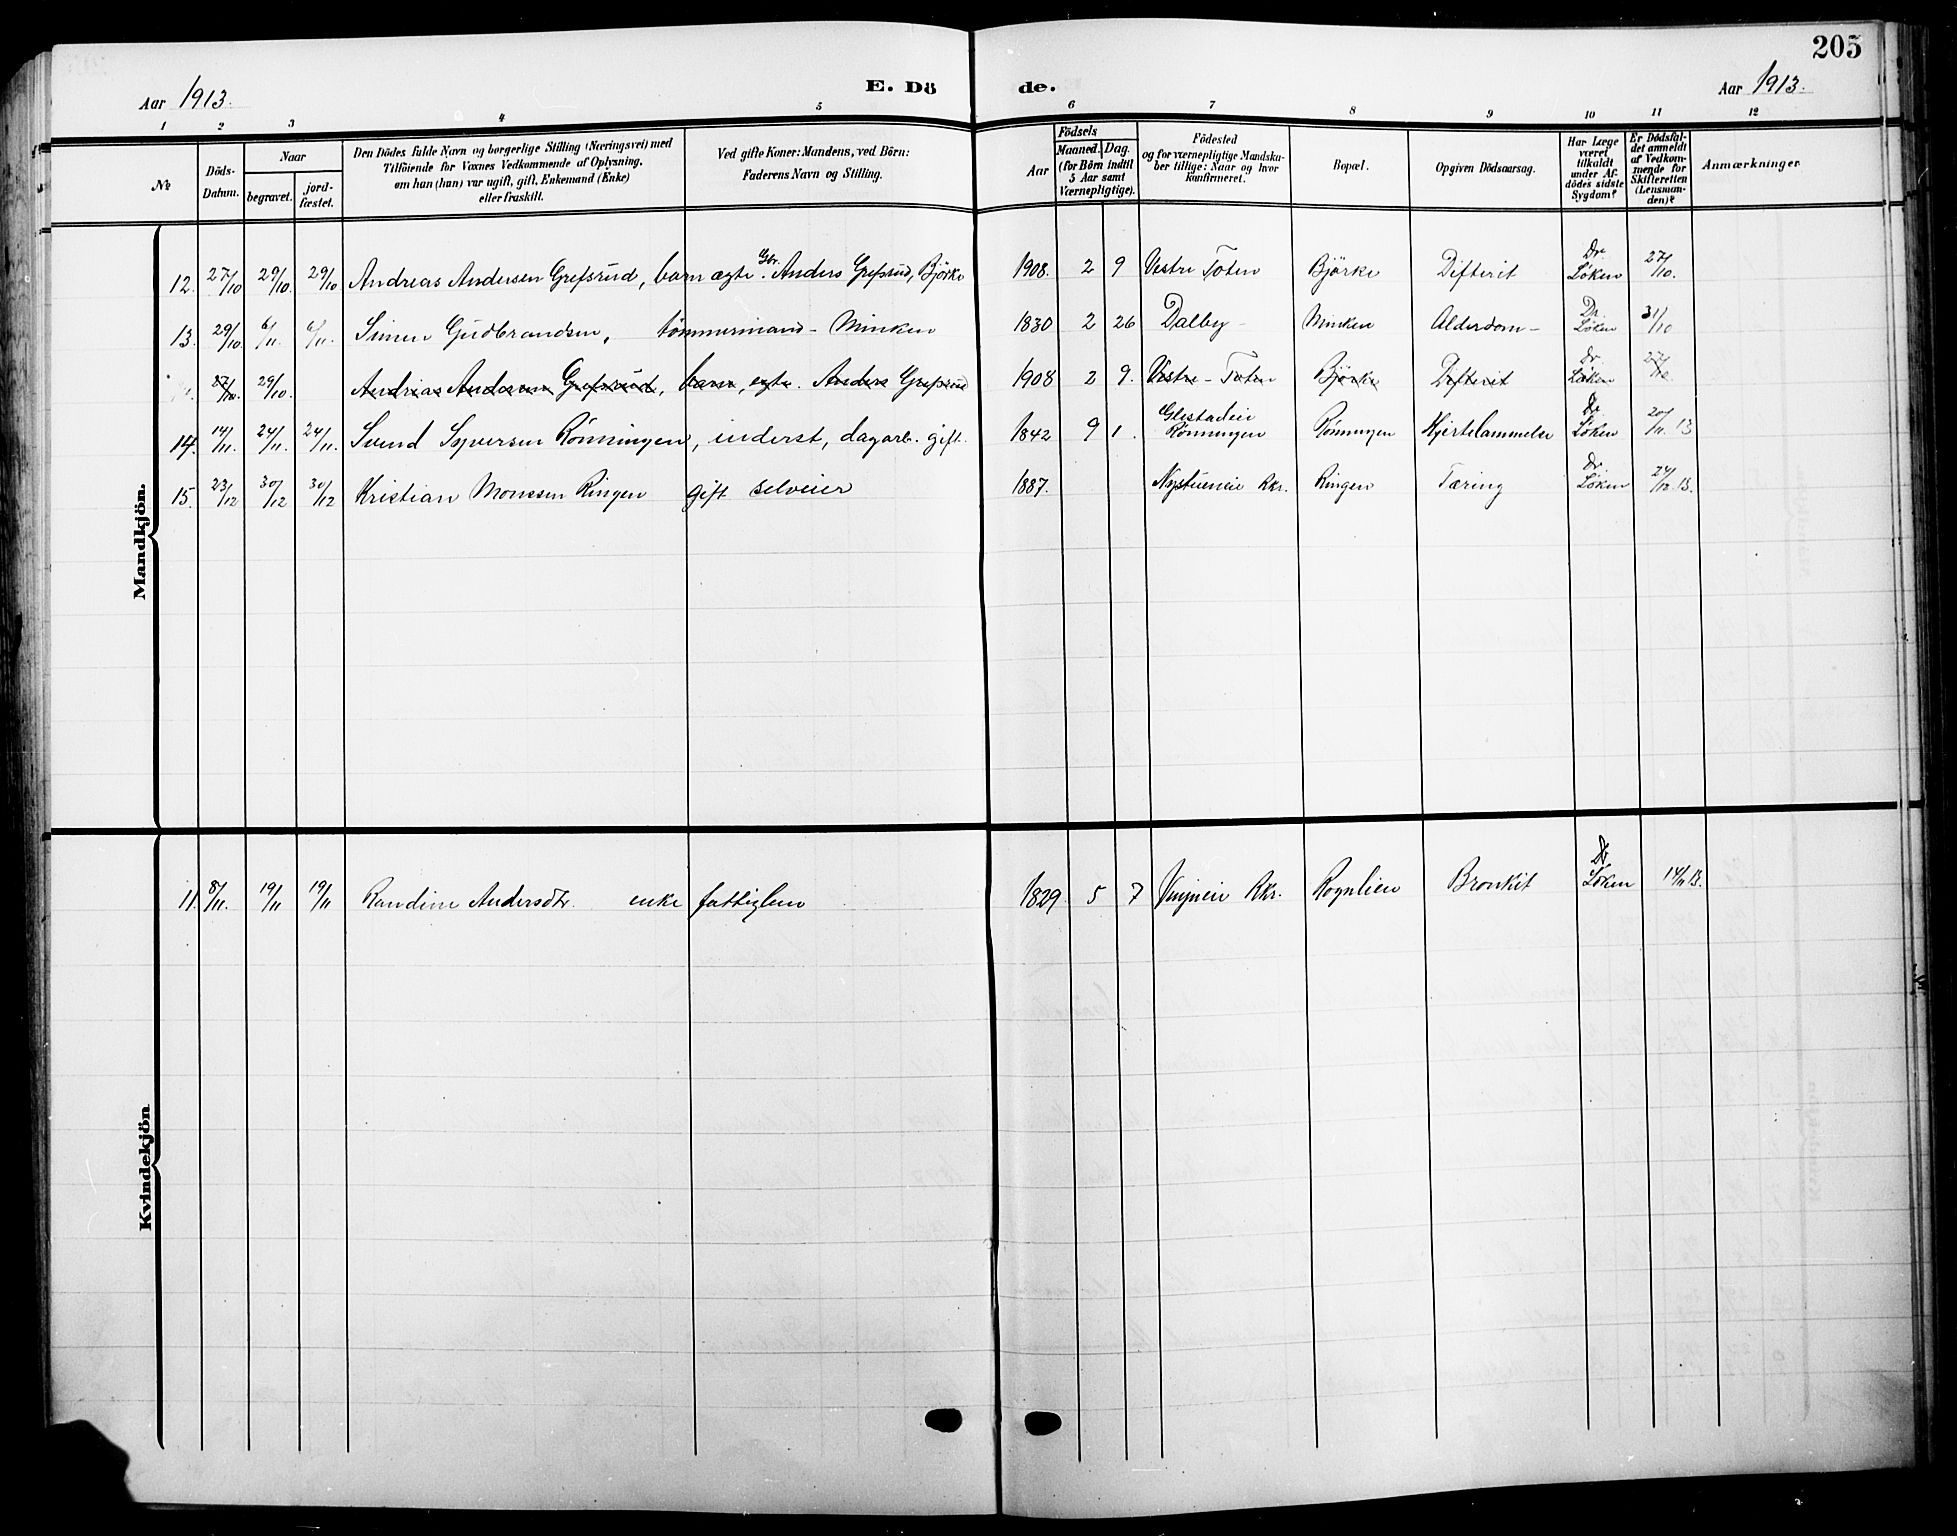 205
Aar 1913. E. Dö de. Aar 1913.
1 2 3 4 5 6 7 8 9 10 11 12
№
Döds-Datum.
Naar
begravet.
jord-fæstet.
Den Dödes fulde Navn og borgerlige Stilling (Næringsvei) med
Tilföiende for Voxnes Vedkommende af Oplysning,
om han (hun) var ugift, gift, Enkemand (Enke)
eller fraskilt.
Ved gifte Koner: Mandens, ved Börn:
Faderens Navn og Stilling.
Födsels
Aar
Maaned. Dag.
(for Börn indtil
5 Aar samt
Værnepligtige).
Födested
og for værnepligtige Mandska-
ber tillige: Naar og hvor
konfirmeret.
Bopæl.
Opgiven Dödsaarsag.
Har Læge
været
tilkaldt
under Af-
dödes sidste
Sygdom?
Er Dödsfal-
det anmeldt
af Vedkom-
mende for
Skifteretten
(Lensman-
den)?
Anmærkninger
Mandkjön.
12. 27/10 29/10. 29/10 Andreas Andersen Grefsrud, barn ægte Gbr. Anders Grefsrud, Björke 1908. 2 9 Vestre Toten Björke Difterit Dr. Löken 27/10.
13. 29/10. 6/11. 6/11. Simen Gudbrandsen, tømmermand - Minken 1830 2 26 Dalby - Minken Alderdom - Dr. Løken 31/10
27/10. 29/10. Andreas Andersen Grefsrud, barn, egte. Anders Grefsrud 1908 2 9. Vestre - Toten Björke Difterit Dr. Løken 27/10.
14. 14/11. 24/11. 24/11. Svend Syversen Rønningen, inderst, dagarb. gift. 1842 9 1. Rønningen Rønningen Hjertelammelse Dr. Løken 20/11. 13
15. 23/12 30/12 30/12 Kristian Monssen Ringen gift selveier 1887. Nystueneie Rkr. Ringen Tæring Dr. Løken 24/12. 13.
Kvindekjön
11. 8/11. 19/11 19/11 Randine Andersdtr. enke fattiglem 1829 5 7 Rkr. Rognlien Bronkit Dr Løken 14/11 13.